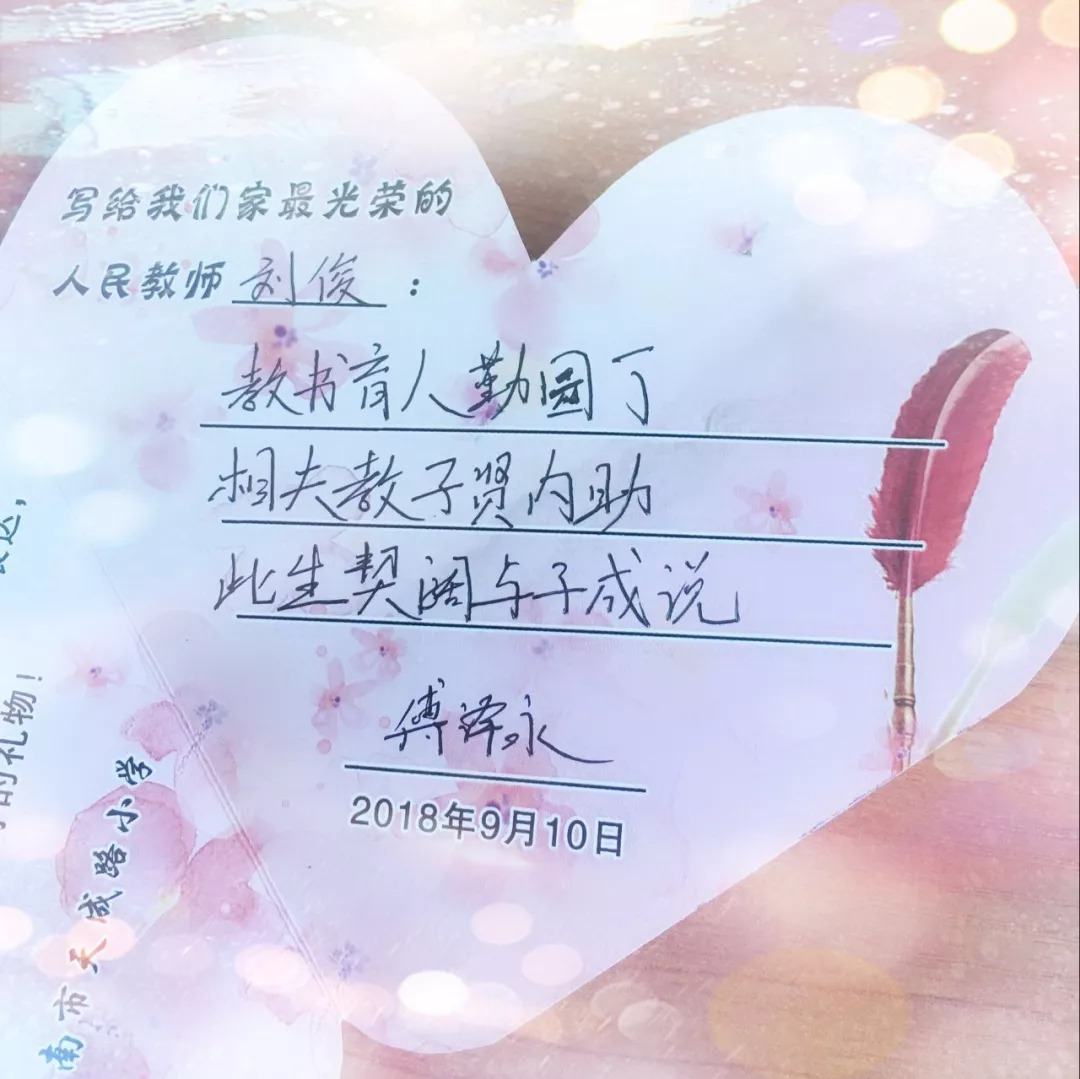 写给我们家最光荣的
人民教师刘俊：
教书育人勤园丁
相夫教子贤内助
此生契阔与子成说
傅泽永
2018年9月10日
的礼物！
南市天成路小学